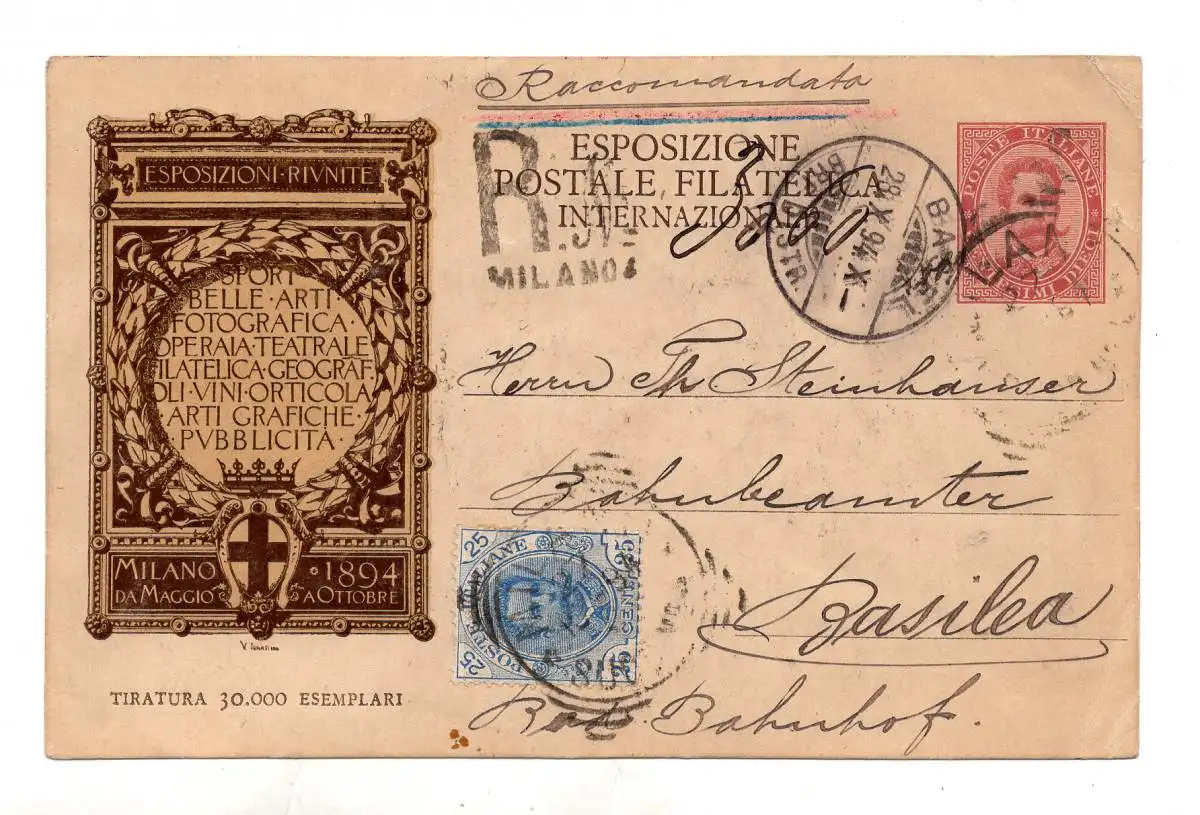 Raccomandata
R
MILANO
ESPOSIZIONE
POSTALE FILATELICA
INTERNAZIONALE
BASEL
28.X.94.X-
POSTE ITALIANE
ESPOSIZIONI·RIVNITE
SPORT
BELLE·ARTI
FOTOGRAFICA·
OPERAIA·TEATRALE
FILATELICA·GEOGRAF.
OLI·VINI·ORTICOLA
ARTI GRAFICHE·
·PVBBLICITÀ·
MILANO 1894
DA MAGGIO A OTTOBRE
TIRATURA 30.000 ESEMPLARI
Herrn Th Steinhauser
Bahnbeamter
Basilea
Bad. Bahnhof.
25 25
POSTE ITALIANE
CENT
25 25